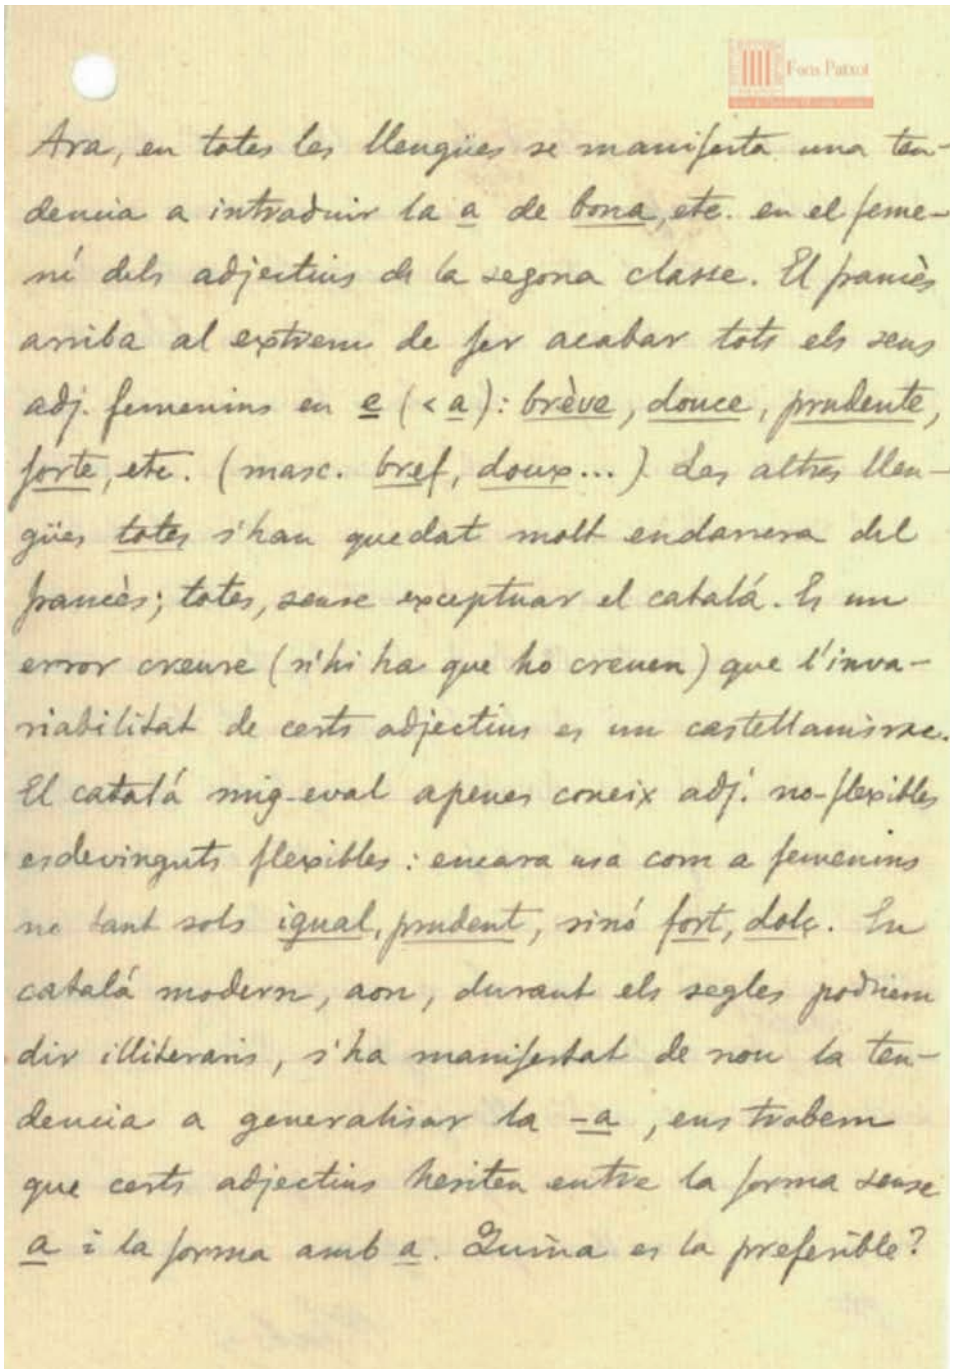 Fons Patxot
Ara, en totes les llengües se manifesta una ten-
dencia a introduir la a de bona, etc. en el feme-
ní dels adjectius de la segona classe. El francès
arriba al extrem de fer acabar tots els seus
adj. femenins en e (< a): brève, douce, prudente,
forte, etc. (masc. bref, doux...). Les altres llen-
gües totes s'han quedat molt endarrera del
francès; totes, sense exceptuar el catalá. Es un
error creure (n'hi ha que ho creuen) que l'inva-
riabilitat de certs adjectius es un castellanisme.
El catalá mig-eval apenes coneix adj. no-flexibles
esdevinguts flexibles: encara usa com a femenins
no tant sols igual, prudent, sinó fort, dolç. En
catalá modern, aon, durant els segles podriem
dir illiteraris, s'ha manifestat de nou la ten-
dencia a generalisar la -a, ens trobem
que certs adjectius hesiten entre la forma sense
a i la forma amb a. Quina es la preferible?